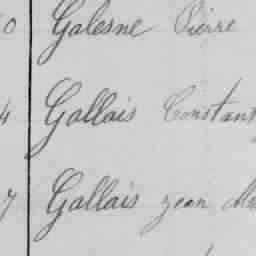 0 Galesne Pierre
4 Gallais Constant
7 Gallais jean